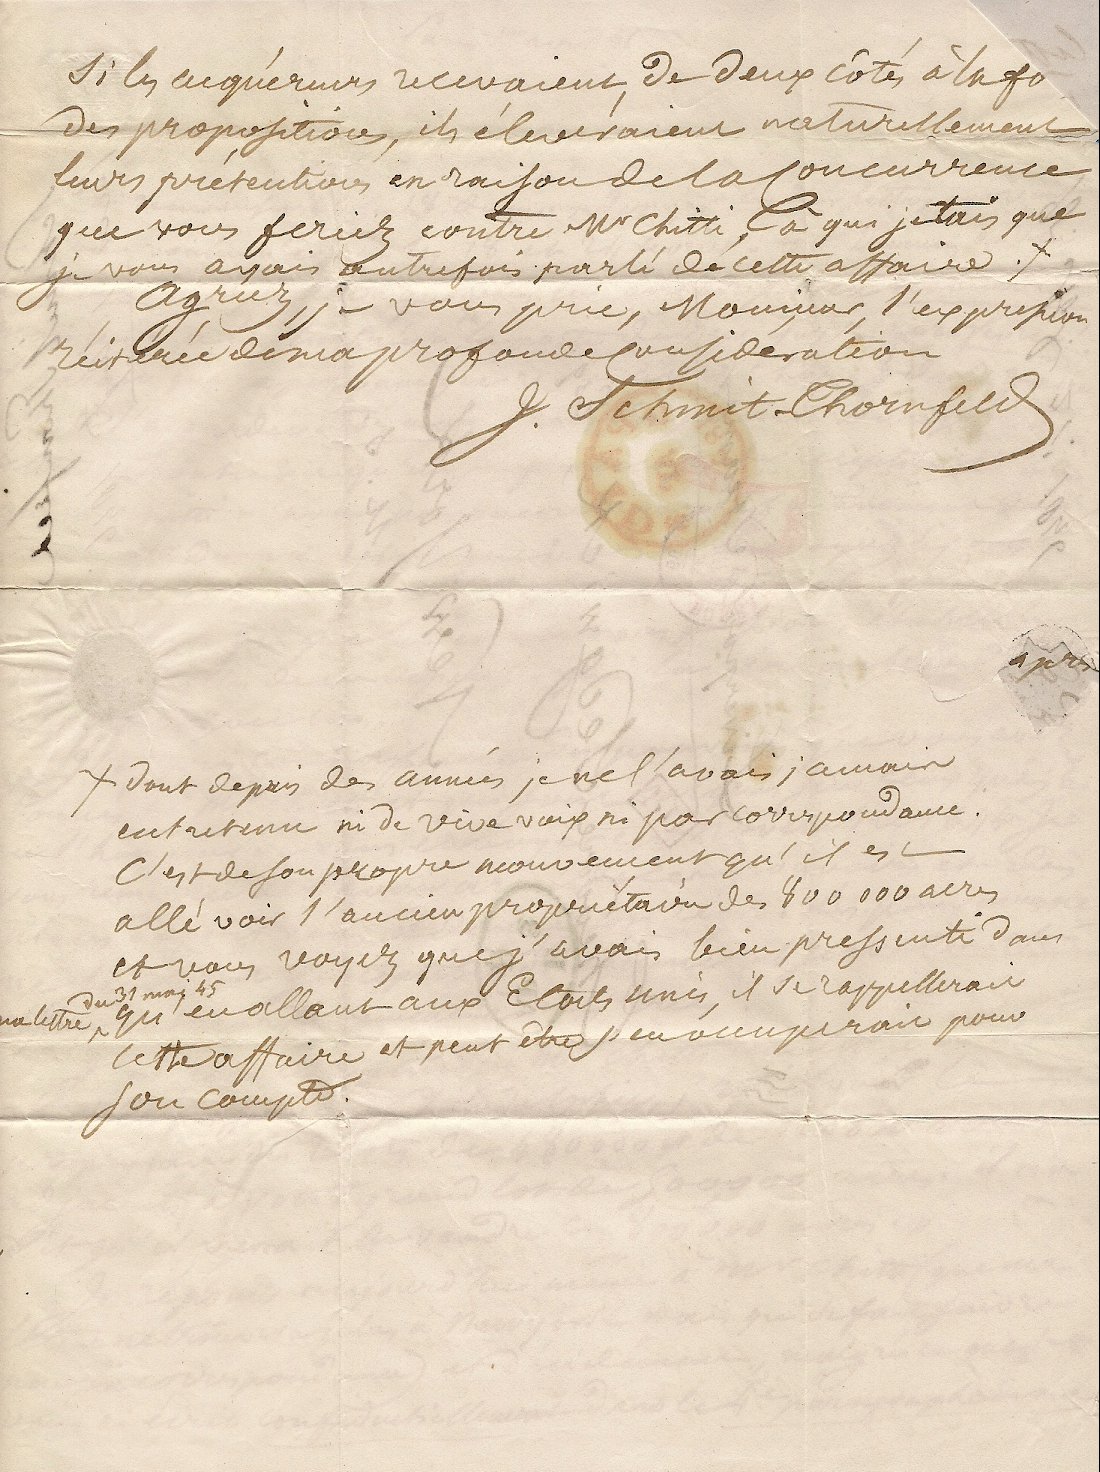 Si les acquéreurs recevaient, de deux côtés à la fo
des propositions, ils éleveraient naturellement
leurs prétentions en raison de la Concurrence
que vous feriez contre Mr Chitti, (à qui je tais que
je vous avais autrefois parlé de cette affaire. +
Agréez, je vous prie, Monsieur, l'expression
réitérée de ma profonde Considération
J. Schmit-Thornfeld
apr
+ dont depuis des années je ne l'avais jamais
entretenu ni de vive voix ni par correspondance.
C'est de son propre mouvement qu'il est
allé voir l'ancien propriétaire des 800 000 acres
et vous voyez que j'avais bien pressenti dans
ma lettre du 31 mai 45 qu'en allant aux Etats unis, il se rappellerait
cette affaire et peut être s'en occuperait pour
son compte.